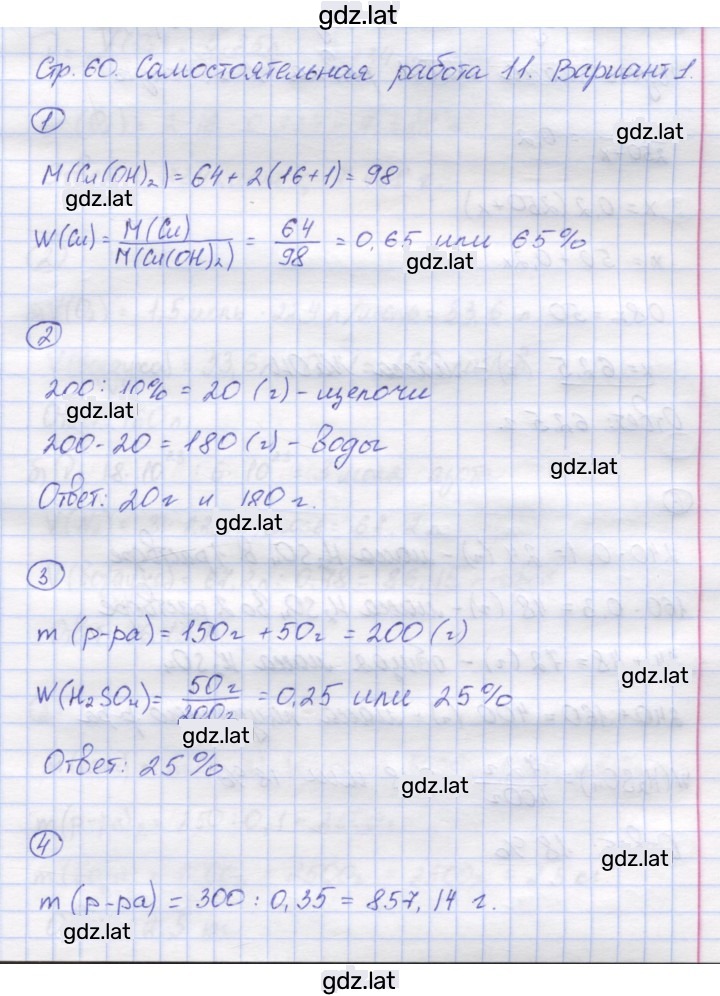 gdz.lat
Стр. 60. Самостоятельная работа 11. Вариант 1.
1
gdz.lat
M(Cu(OH)₂) = 64 + 2(16+1) = 98
gdz.lat
W(Cu) = M(Cu) / M(Cu(OH)₂) = 64 / 98 = 0,65 или 65%
gdz.lat
2
200 : 10% = 20 (г) - щелочи
gdz.lat
200 - 20 = 180 (г) - воды
gdz.lat
Ответ: 20г и 180 г.
gdz.lat
3
m (р-ра) = 150г + 50г = 200 (г)
gdz.lat
W(H₂SO₄) = 50г / 200г = 0,25 или 25%
gdz.lat
Ответ: 25%
gdz.lat
4
gdz.lat
m (р-ра) = 300 : 0,35 = 857,14 г.
gdz.lat
gdz.lat